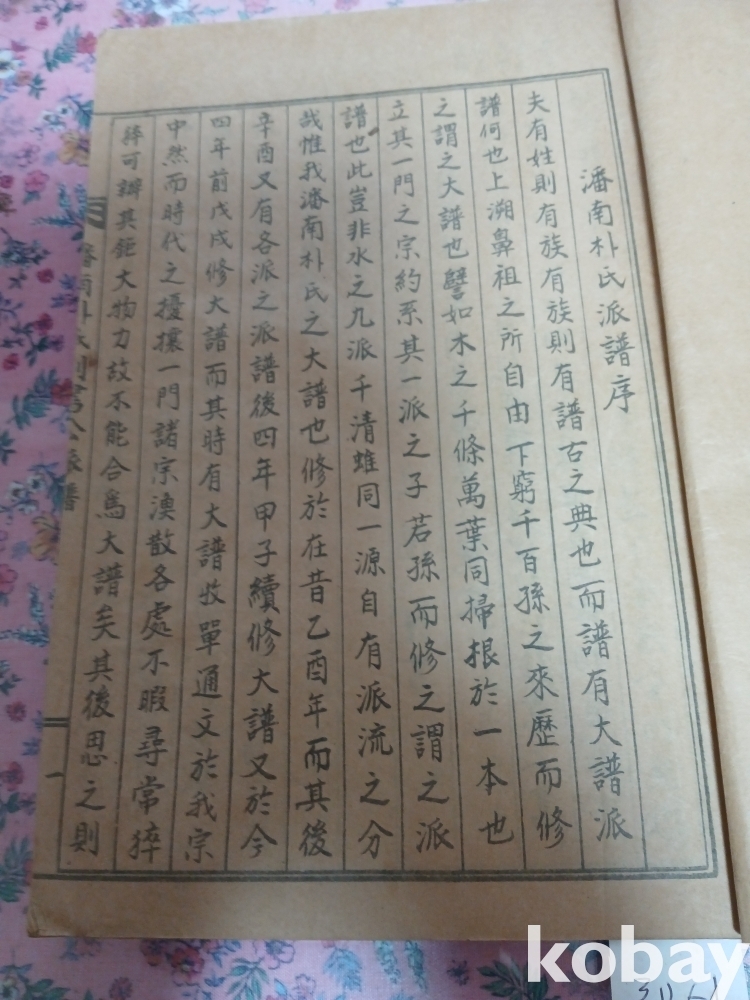 潘南朴氏派譜序
夫有姓則有族有族則有譜古之典也而譜有大譜派
譜何也上溯鼻祖之所自由下窮千百孫之來歷而修
之謂之大譜也譬如木之千條萬葉同掃根於一本也
立其一門之宗約系其一派之子若孫而修之謂之派
譜也此豈非水之几派千清雖同一源自有派流之分
哉惟我潘南朴氏之大譜也修於在昔乙酉年而其後
辛酉又有各派之派譜後四年甲子續修大譜又於今
四年前戊戌修大譜而其時有大譜收單通文於我宗
中然而時代之擾攘一門諸宗渙散各處不暇尋常猝
猝可辦其鉅大物力故不能合爲大譜矣其後思之則
潘南朴氏判書公派譜
一
kobay